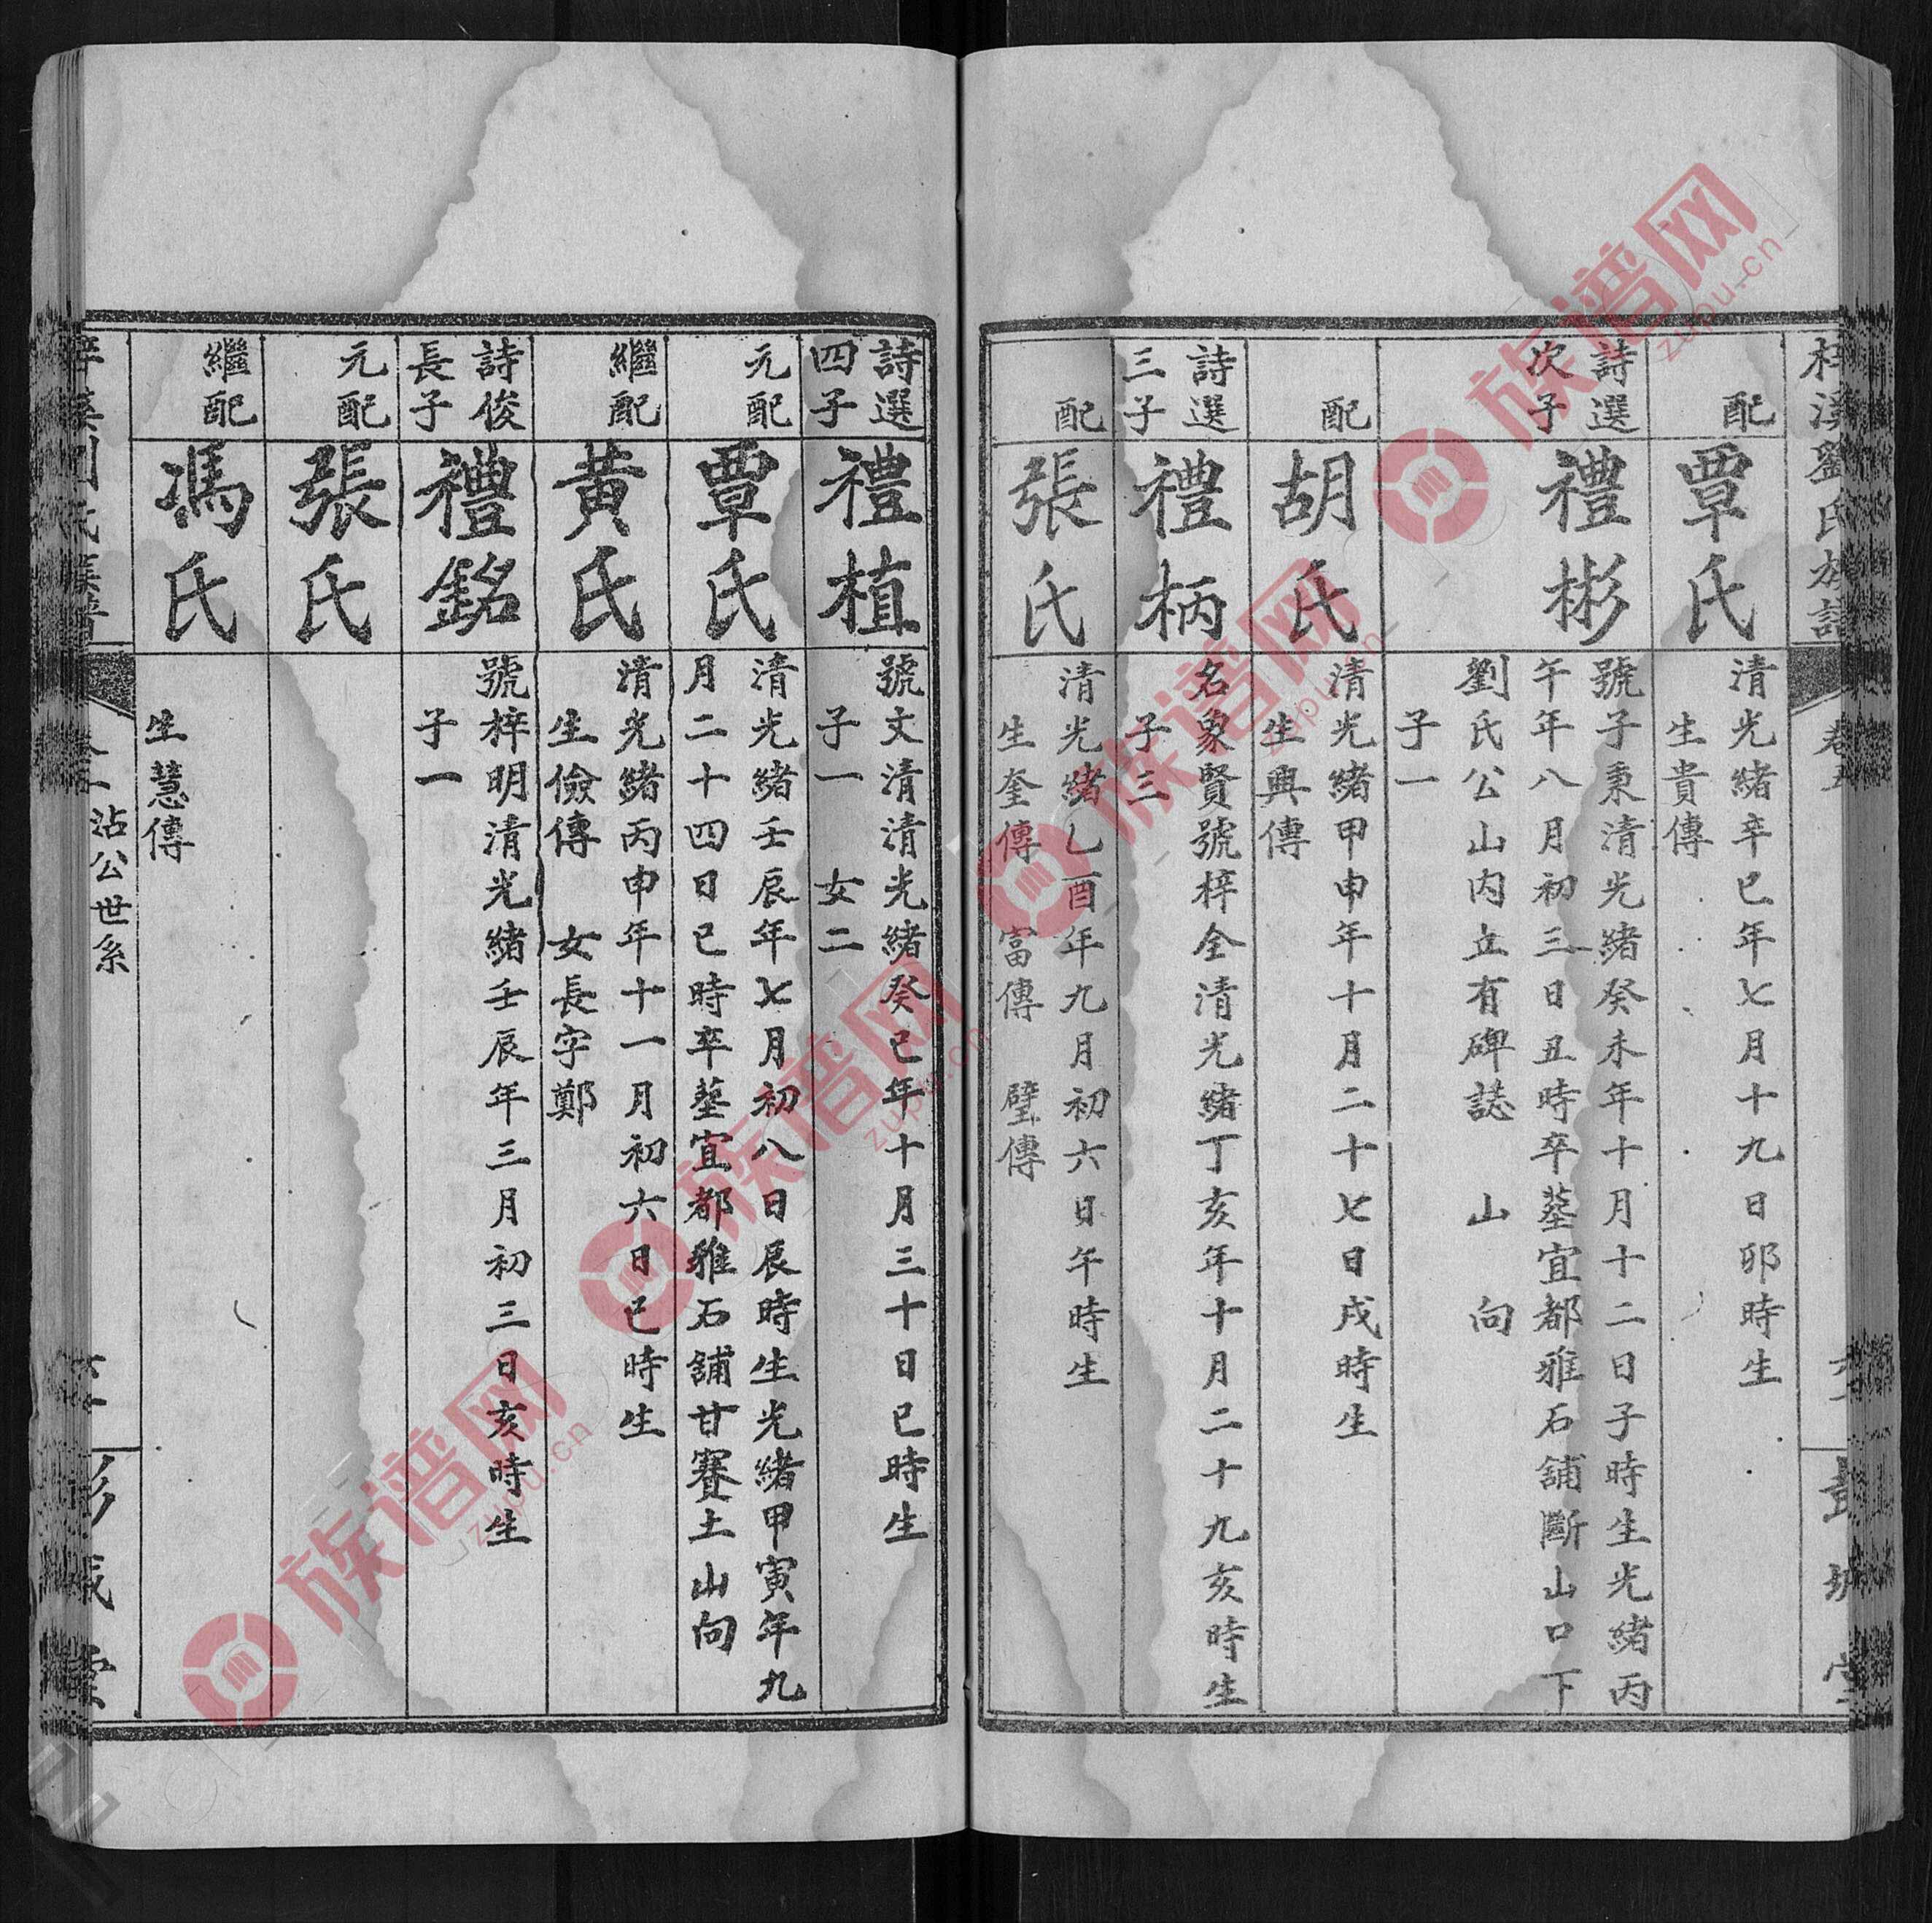 梓溪劉氏族譜
卷五
彭城堂
配
覃氏
清光緒辛巳年七月十九日卯時生
生貴傳
詩選
次子
禮彬
號子秉清光緒癸未年十月十二日子時生光緒丙
午年八月初三日丑時卒塟宜都雅石舖斷山口下
劉氏公山內立有碑誌 山 向
子一
配
胡氏
清光緒甲申年十月二十七日戌時生
生興傳
詩選
三子
禮柄
名象賢號梓全清光緒丁亥年十月二十九亥時生
子三
配
張氏
清光緒乙酉年九月初六日午時生
生奎傳 富傳 璧傳
詩選
四子
禮植
號文清清光緒癸巳年十月三十日巳時生
子一 女二
元配
覃氏
清光緒壬辰年七月初八日辰時生光緒甲寅年九
月二十四日巳時卒塟宜都雅石舖甘賽土山向
繼配
黃氏
清光緒丙申年十一月初六日巳時生
生儉傳 女長字鄭
詩俊
長子
禮銘
號梓明清光緒壬辰年三月初三日亥時生
子一
元配
張氏
繼配
馮氏
生慧傳
公世系
族谱网
zupu.cn
族谱网
zupu.cn
族谱网
zupu.cn
族谱网
zupu.cn